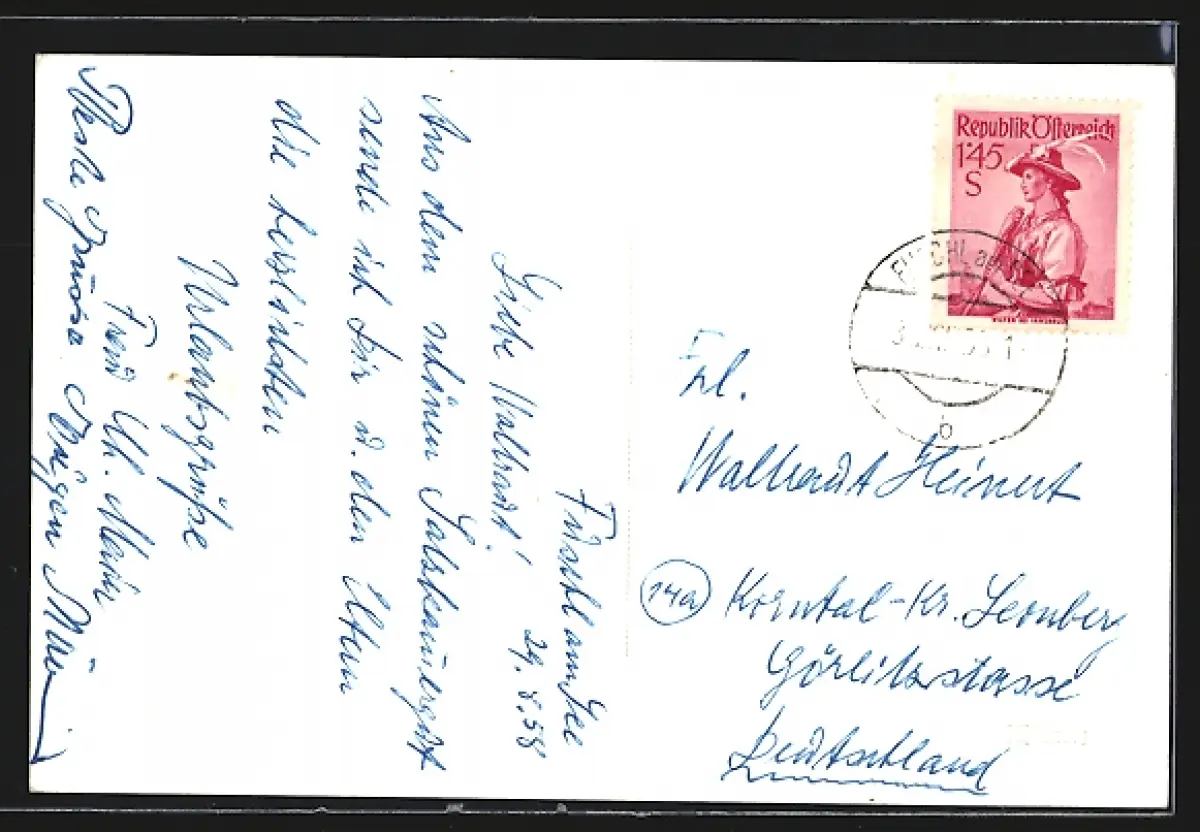 Fuschl am See
29. 8. 58
Liebe Waltraut!
Aus dem schönen Salzkammergut
sende ich Dir u. den Eltern
die herzlichsten
Urlaubsgrüße
Beste Grüsse
Republik Österreich
1·45
S
FUSCHL am
b
Frl.
Waltraut Heinert
14a Korntal-Kr. Leonberg
Görlitzstrasse
Deutschland